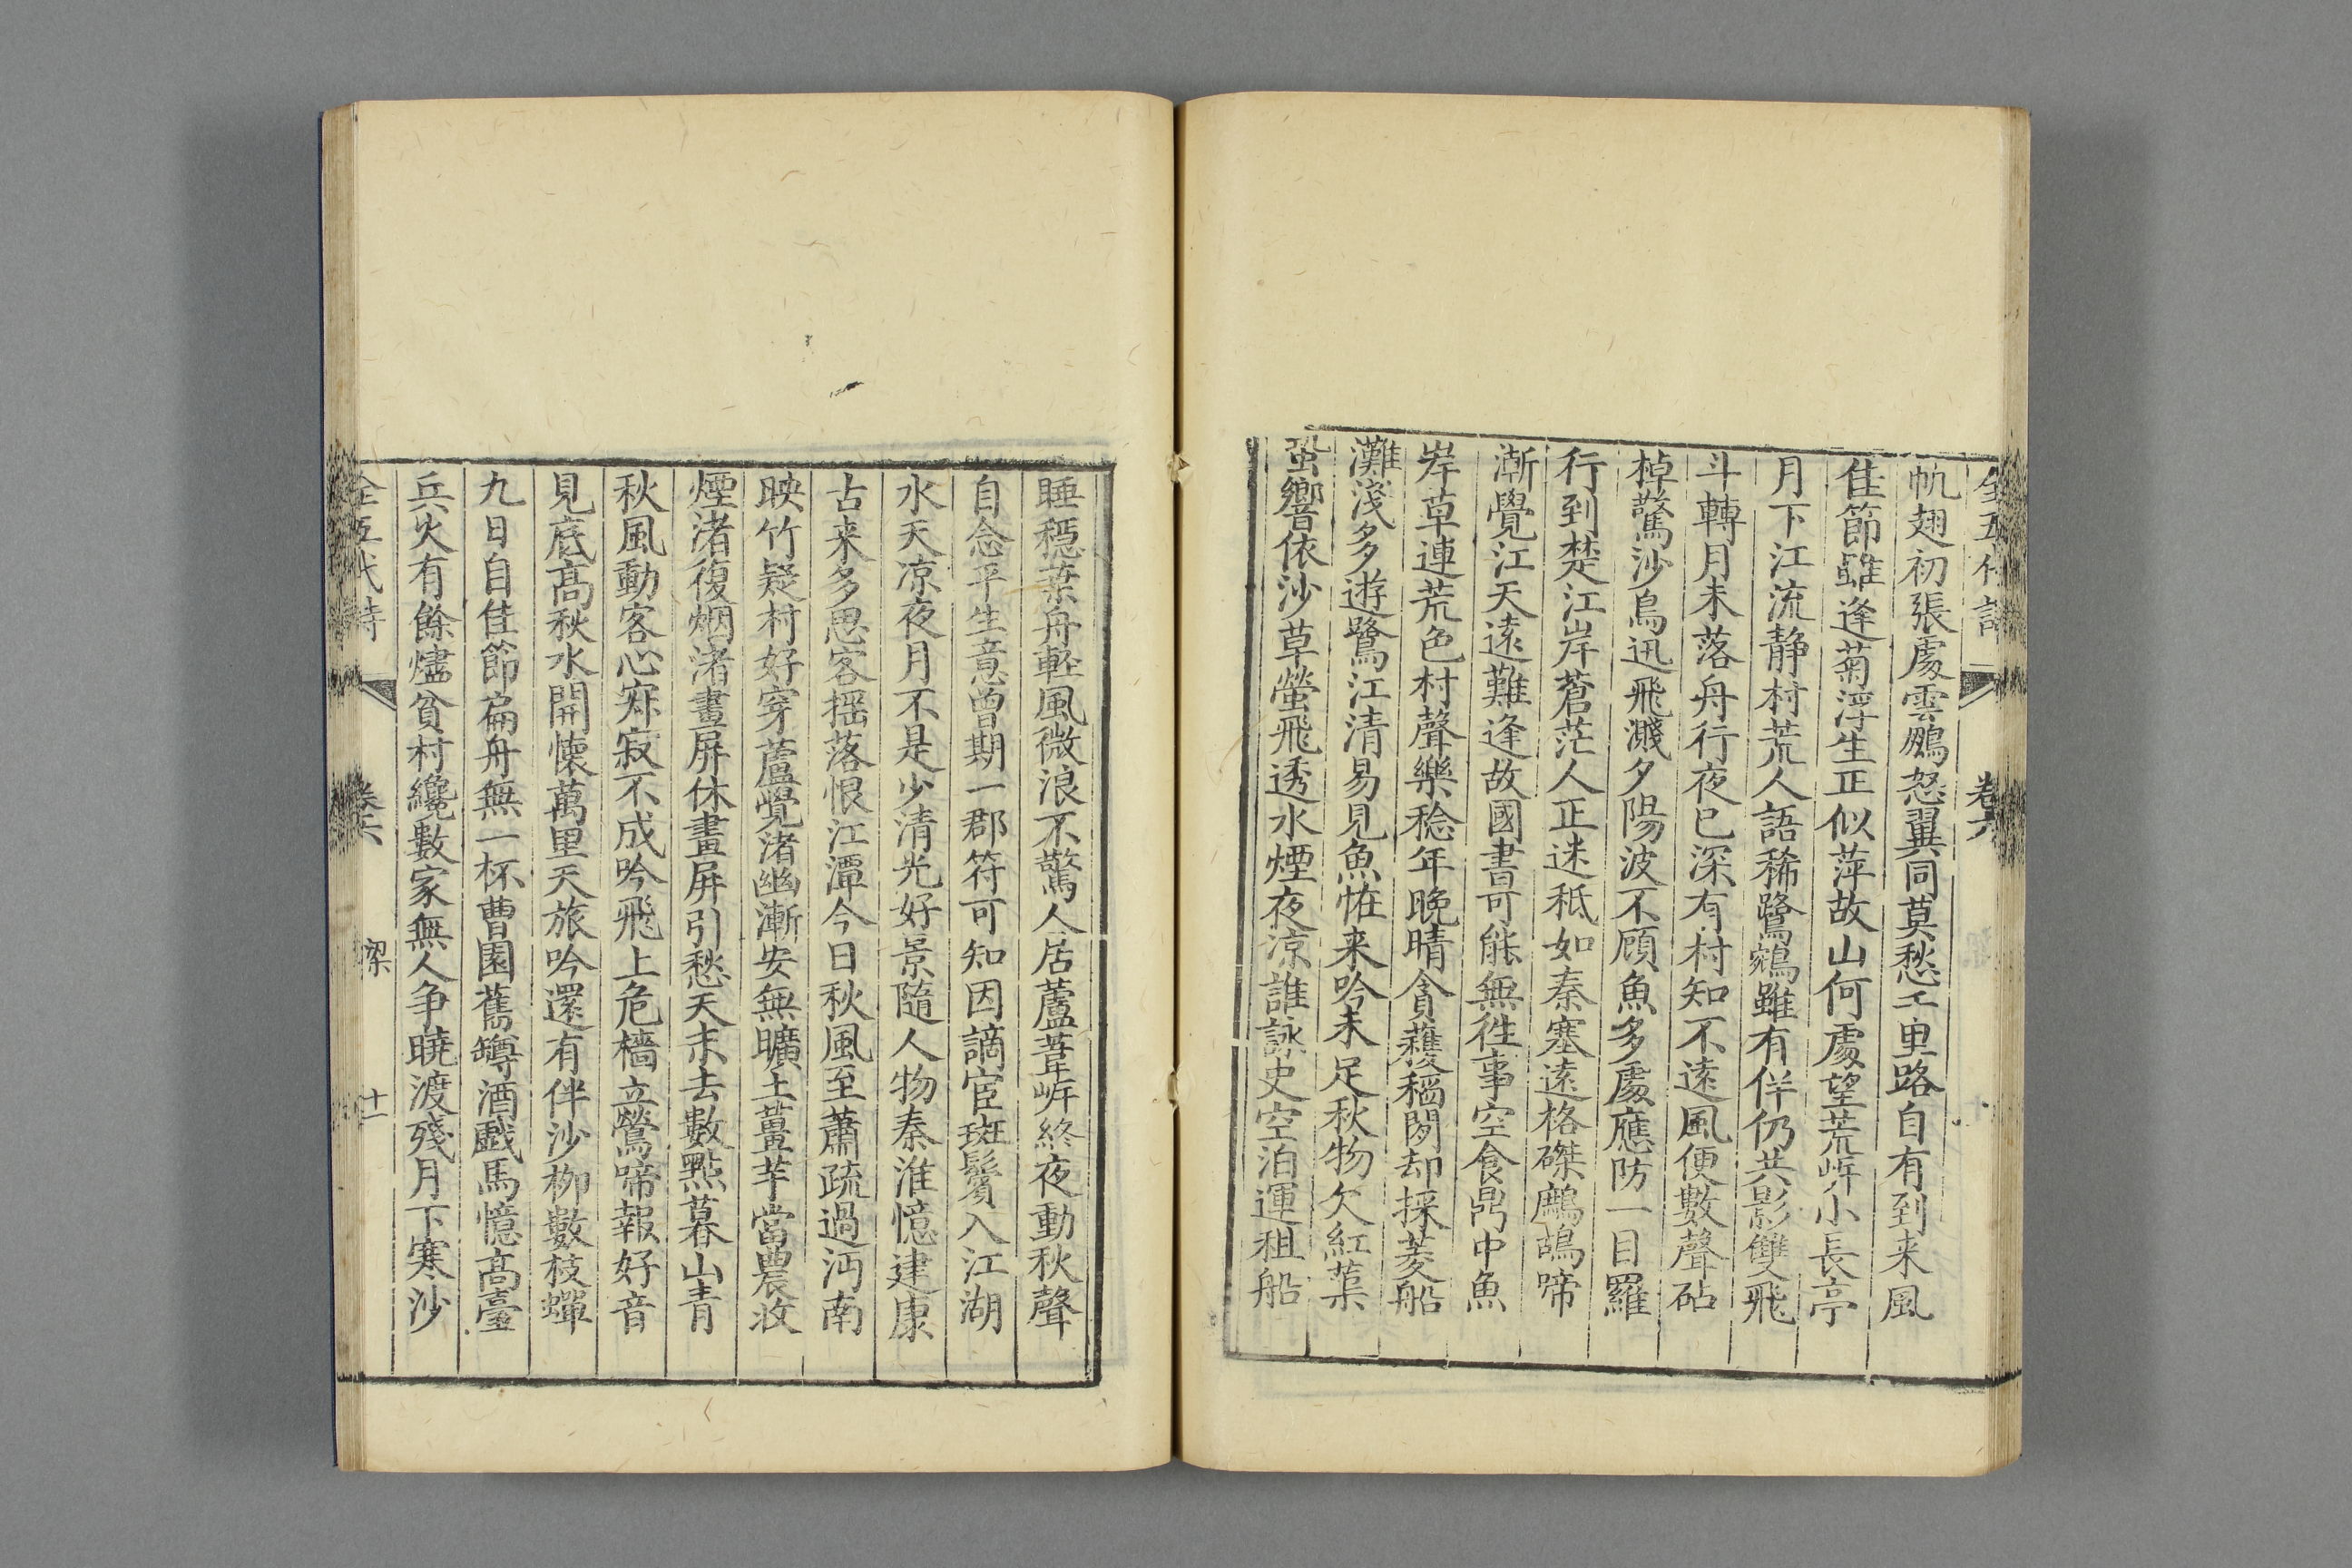 全五代詩
卷六
帆翅初張處雲鵬怒翼同莫愁千里路自有到来風
佳節雖逢菊浮生正似萍故山何處望荒岸小長亭
月下江流静村荒人語稀鷺鷀雖有伴仍共影雙飛
斗轉月未落舟行夜已深有村知不逺風便數聲砧
棹驚沙鳥迅飛濺夕陽波不顧魚多處應防一目羅
行到楚江岸蒼茫人正迷秪如秦塞逺格磔鷓鴣啼
漸覺江天逺難逢故國書可能無徃事空食鼎中魚
岸草連荒色村聲樂稔年晚晴貪穫稻閑却採菱船
灘淺多遊鷺江清易見魚恠来吟未足秋物欠紅蕖
蛩響依沙草螢飛透水煙夜凉誰詠史空泊運租船
睡穩葉舟輕風微浪不驚人居蘆葦岸終夜動秋聲
自念平生意曾期一郡符可知因謫宦斑鬢入江湖
水天凉夜月不是少清光好景隨人物秦淮憶建康
古来多思客摇落恨江潭今日秋風至蕭疏過沔南
映竹疑村好穿蘆覺渚幽漸安無曠土薑芋當農收
煙渚復烟渚畫屏休畫屏引愁天末去數點暮山青
秋風動客心寂寂不成吟飛上危檣立鶯啼報好音
見底髙秋水開懐萬里天旅吟還有伴沙栁數枝蟬
九日自佳節扁舟無一杯曹園舊罇酒戲馬憶髙臺
兵火有餘燼貧村纔數家無人争曉渡殘月下寒沙
全五代詩
卷六
梁
十一